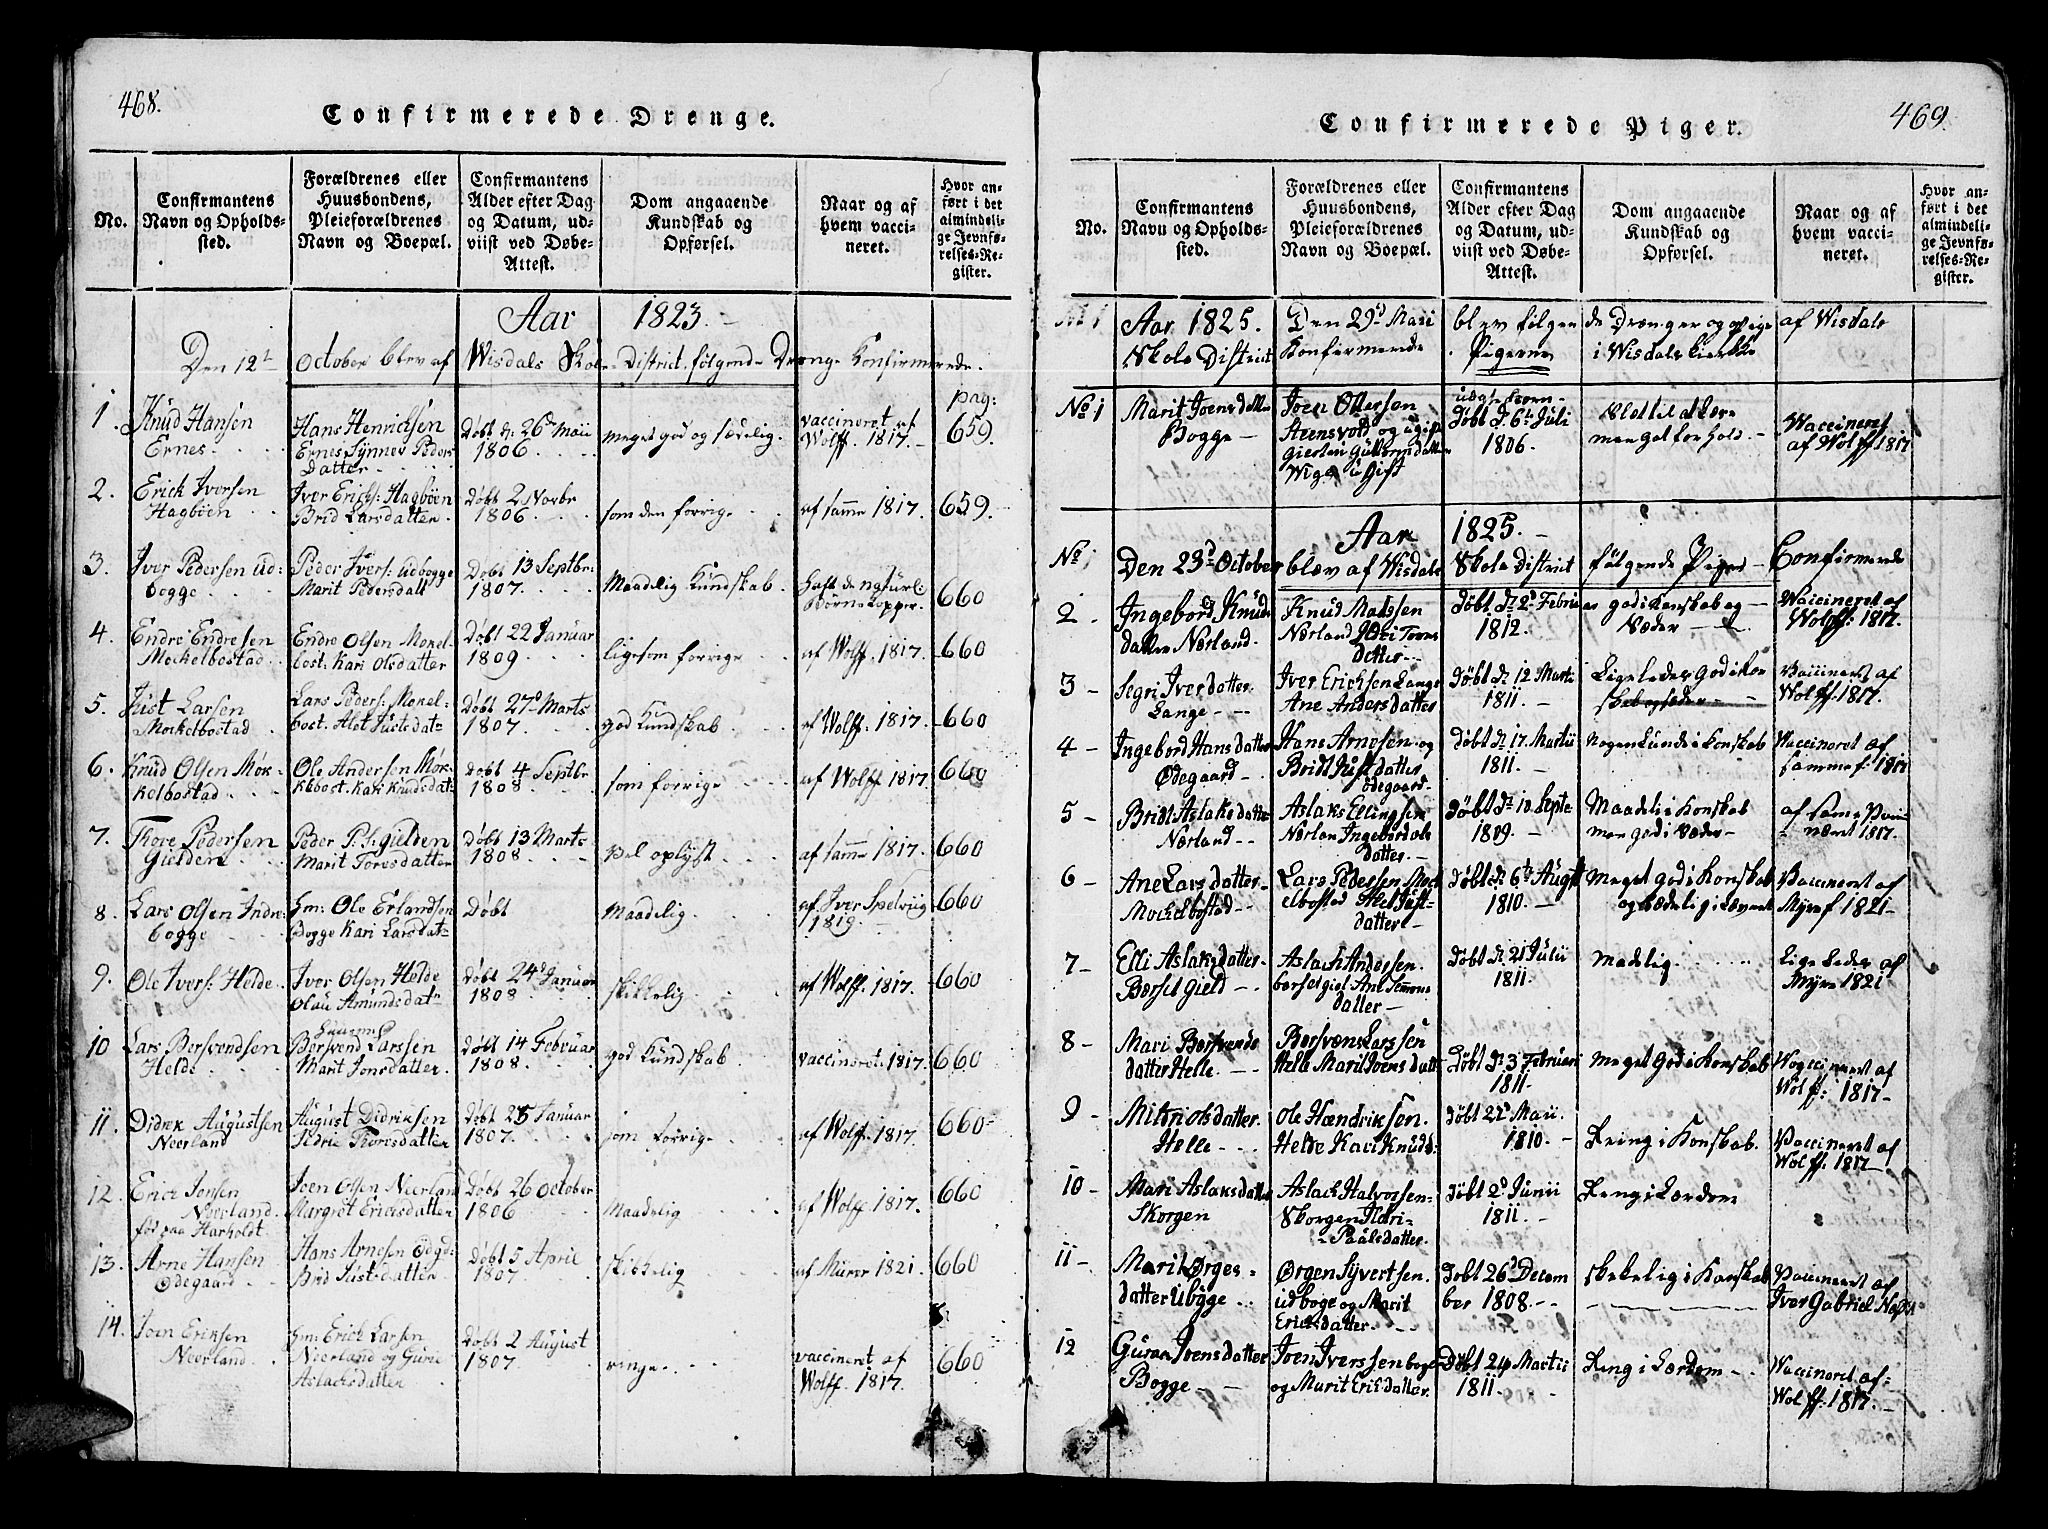 468.
Confirmerede Drenge.
No.
Confirmantens
Navn og Opholds-
sted.
Forældrenes eller
Huusbondens,
Pleieforældrenes
Navn og Boepæl.
Confirmantens
Alder efter Dag
og Datum, ud-
viist ved Døbe-
Attest.
Dom angaaende
Kundskab og
Opførsel.
Naar og af
hvem vacci-
neret.
Hvor an-
ført i det
almindeli-
ge Jevnfø-
relses-Re-
gister.
Aar 1823.
Den 12t October blev af Wisdals Skole-District følgende Drenge Konfirmerede.
pag:
1. Knud Hansen
Ernes
Hans Henrichsen
Ernes Synnev Peders
Datter
Døbt d. 26de Maii
1806.
meget god og sædelig.
vaccineret af
Wolff. 1817.
659.
2. Erick Iversen
Hagbøen
Iver Erichs: Hagbøen
Brid Larsdatter
Døbt 2 Novbr
1806.
som den forrige
af samme 1817.
659.
3. Iver Pedersen ud-
bogge
Peder Ivers: Udbogge
Marit Pedersdatt
Døbt 13 Septbr:
1807.
Maadelig Kundskab
haft de naturl:
Børnekopper.
660
4. Endre Endresen
Mockelbostad
Endre Olsen Mokel-
bost: Kari Olsdatter
Døbt 22 Januar
1809
ligesom forrige
af Wolff. 1817.
660
5. Just Larsen
Mockelbostad
Lars Peders: Monel-
bost. Alet Justsdat-
Døbt 27de Marts
1807.
god Kundskab
af Wolff. 1817.
660
6. Knud Olsen Møk-
kelbostad
Ole Andersen Møk-
kebost. Kari Knudsdat-
Døbt 4 Septbr
1808
som forrige
af Wolff 1817.
660
7. Thore Pedersen
Gielden
Peder P.s. Gielden
Marit Toresdatter
Døbt 13 Marts
1808
vel oplyst
af samme 1817.
660
8. Lars Olsen Indre
bogge
Hm: Ole Erlandsen
Bogge Kari Larsdat-
Døbt
Maadelig
af Iver Spelvig
1819.
660
9. Ole Ivers: Helde
Iver Olsen Helde
Olau Amundsdat-
Døbt 24de Januar
1808
skikkelig
af Wolff. 1817.
660
10 Lars Bersvendsen
Helde
Bersvend Larssen
Marit Jonsdatter
Døbt 14 Februar
1808.
god Kundskab
vaccineret 1817.
660
11. Didrik Augustsen
Neerland
August Didriksen
Sidrie Thoresdatter
Døbt 25 Januar
1807.
som forrige
af Wolff. 1817.
660
12. Erick Jonsen
Neerland
fød paa Harholdt.
Joen Olsen Neerland
Margret Ericksdatter
Døbt 26 October
1806
Maadelig
af Wolff. 1817.
660
13. Arne Hansen
Ødegaard
Hans Arnesen Ødgd:
Brid Justsdatter
Døbt 5 April
1807.
skikkelig
af Mürer 1821.
660
14. Joen Eriksen
Neerland
Hm: Erick Larsen
Neerland og Gurie
Aslacksdatter
Døbt 2 August
1807.
ringe
vaccineret af
Wolff. 1817.
660
469.
Confirmerede Piger.
No.
Confirmantens
Navn og Opholds-
sted.
Forældrenes eller
Huusbondens,
Pleieforældrenes
Navn og Boepæl.
Confirmantens
Alder efter Dag
og Datum, ud-
viist ved Døbe-
Attest.
Dom angaaende
Kundskab og
Opførsel.
Naar og af
hvem vacci-
neret.
Hvor an-
ført i det
almindeli-
ge Jevnfø-
relses-Re-
gister.
Aar 1825. Den 29d Maii blev følgende Drenger og pige af Wisdals
Skole District Konfirmerede Pigerne i Wisdals kierke
No 1 Marit Joensdatter
Bogge
Joen Ottersen
Steensvold og ugift
Giertru Guttormsdatter
Wige u Gift
uægte
Døbt d. 6te Juli
1806.
Slet til at Lære
men got forhold
Waccineret
af Wolff 1817
Aar 1825.
No 1 Den 23d October blev af Wisdals Skole District følgende Piger Confirmerede
2. Ingebord Knuds
datter Nærland
Knud Madssen
Nærland
Datter
Døbt d. 2d Febrii
1812.
god i Konskab og
Sæder
Waccineret af
Wolff: 1817.
3 Segri Iverdatter
Lange
Iver Ericksen Lange
Ane Andersdatter
Døbt d. 12 Marti
1811.
Ligeleder God i Kon
skab og sæder
Vaccineret af
Wolff 1817.
4 Ingebord Hansdatter
Ødegaard
Hans Arnesen og
Bridt Justdatter
Ødegaard
Døbt d. 17 Martii
1811.
Nogen Kunde i Konskab
Waccineret af
samme: 1817
5 Bridt Aslaksdatter
Nærland
Aslak Ellingsen
Nærlan Ingebor Ols
datter
Døbt d. 10 Septe
1809.
Maadeli i Konskab
men god i Sæder
af same Vaccii
neret 1817.
6 Ane Larsdatter
Mockelbostad
Lars Pedersen Mock
elbostad Alet Just-
datter
Døbt d. 6te August
1810.
Meget god i Konskab
og sædelig i Levnet
Vaccineret af
Myref 1821
7 Elli Aslaksdatter
Bærset Gield
Aslach Andersen.
berset giel Ane Simons
datter
Døbt d. 21 Julii
1811.
Madelig
Lige Leder af
Myre 1821
8 Mari Bersvends
datter Helle
Bersvens Larssen
Helle Marit Joens datt
Døbt d. 3 Februari
1811.
Meget God i Konskab
Waccineret af
Wolff: 1817
9 Mitri Olsdatter.
Helle
Ole Hændriksen.
Helde Kari Knuds:
Døbt 22d Maii
1810.
Ring i Konskab.
Vaccineret af
Wolff: 1817
10 Mari Aslaksdatter
Skorgen
Aslach Halvorsen
Skorgen Ildri
Paalsdatter.
Døbt 2d Junii
1811.
Ring i Lærdom
11 Marit Ørges
datter Ubøge
Ørgen Syvertsen.
udboge og Marit
Ericksdatter.
Døbt 26d Decem
ber 1808.
skekelig i Konskab
Vaccineret af
Iver Gabriel
12 Guran Joensdatter
Bogge
Joen Iverssen boge
og Marit Eriksdatter.
Døbt 24 Martii
1811.
Ring i Lærdom
Waccineret af
Wolff: 1817.